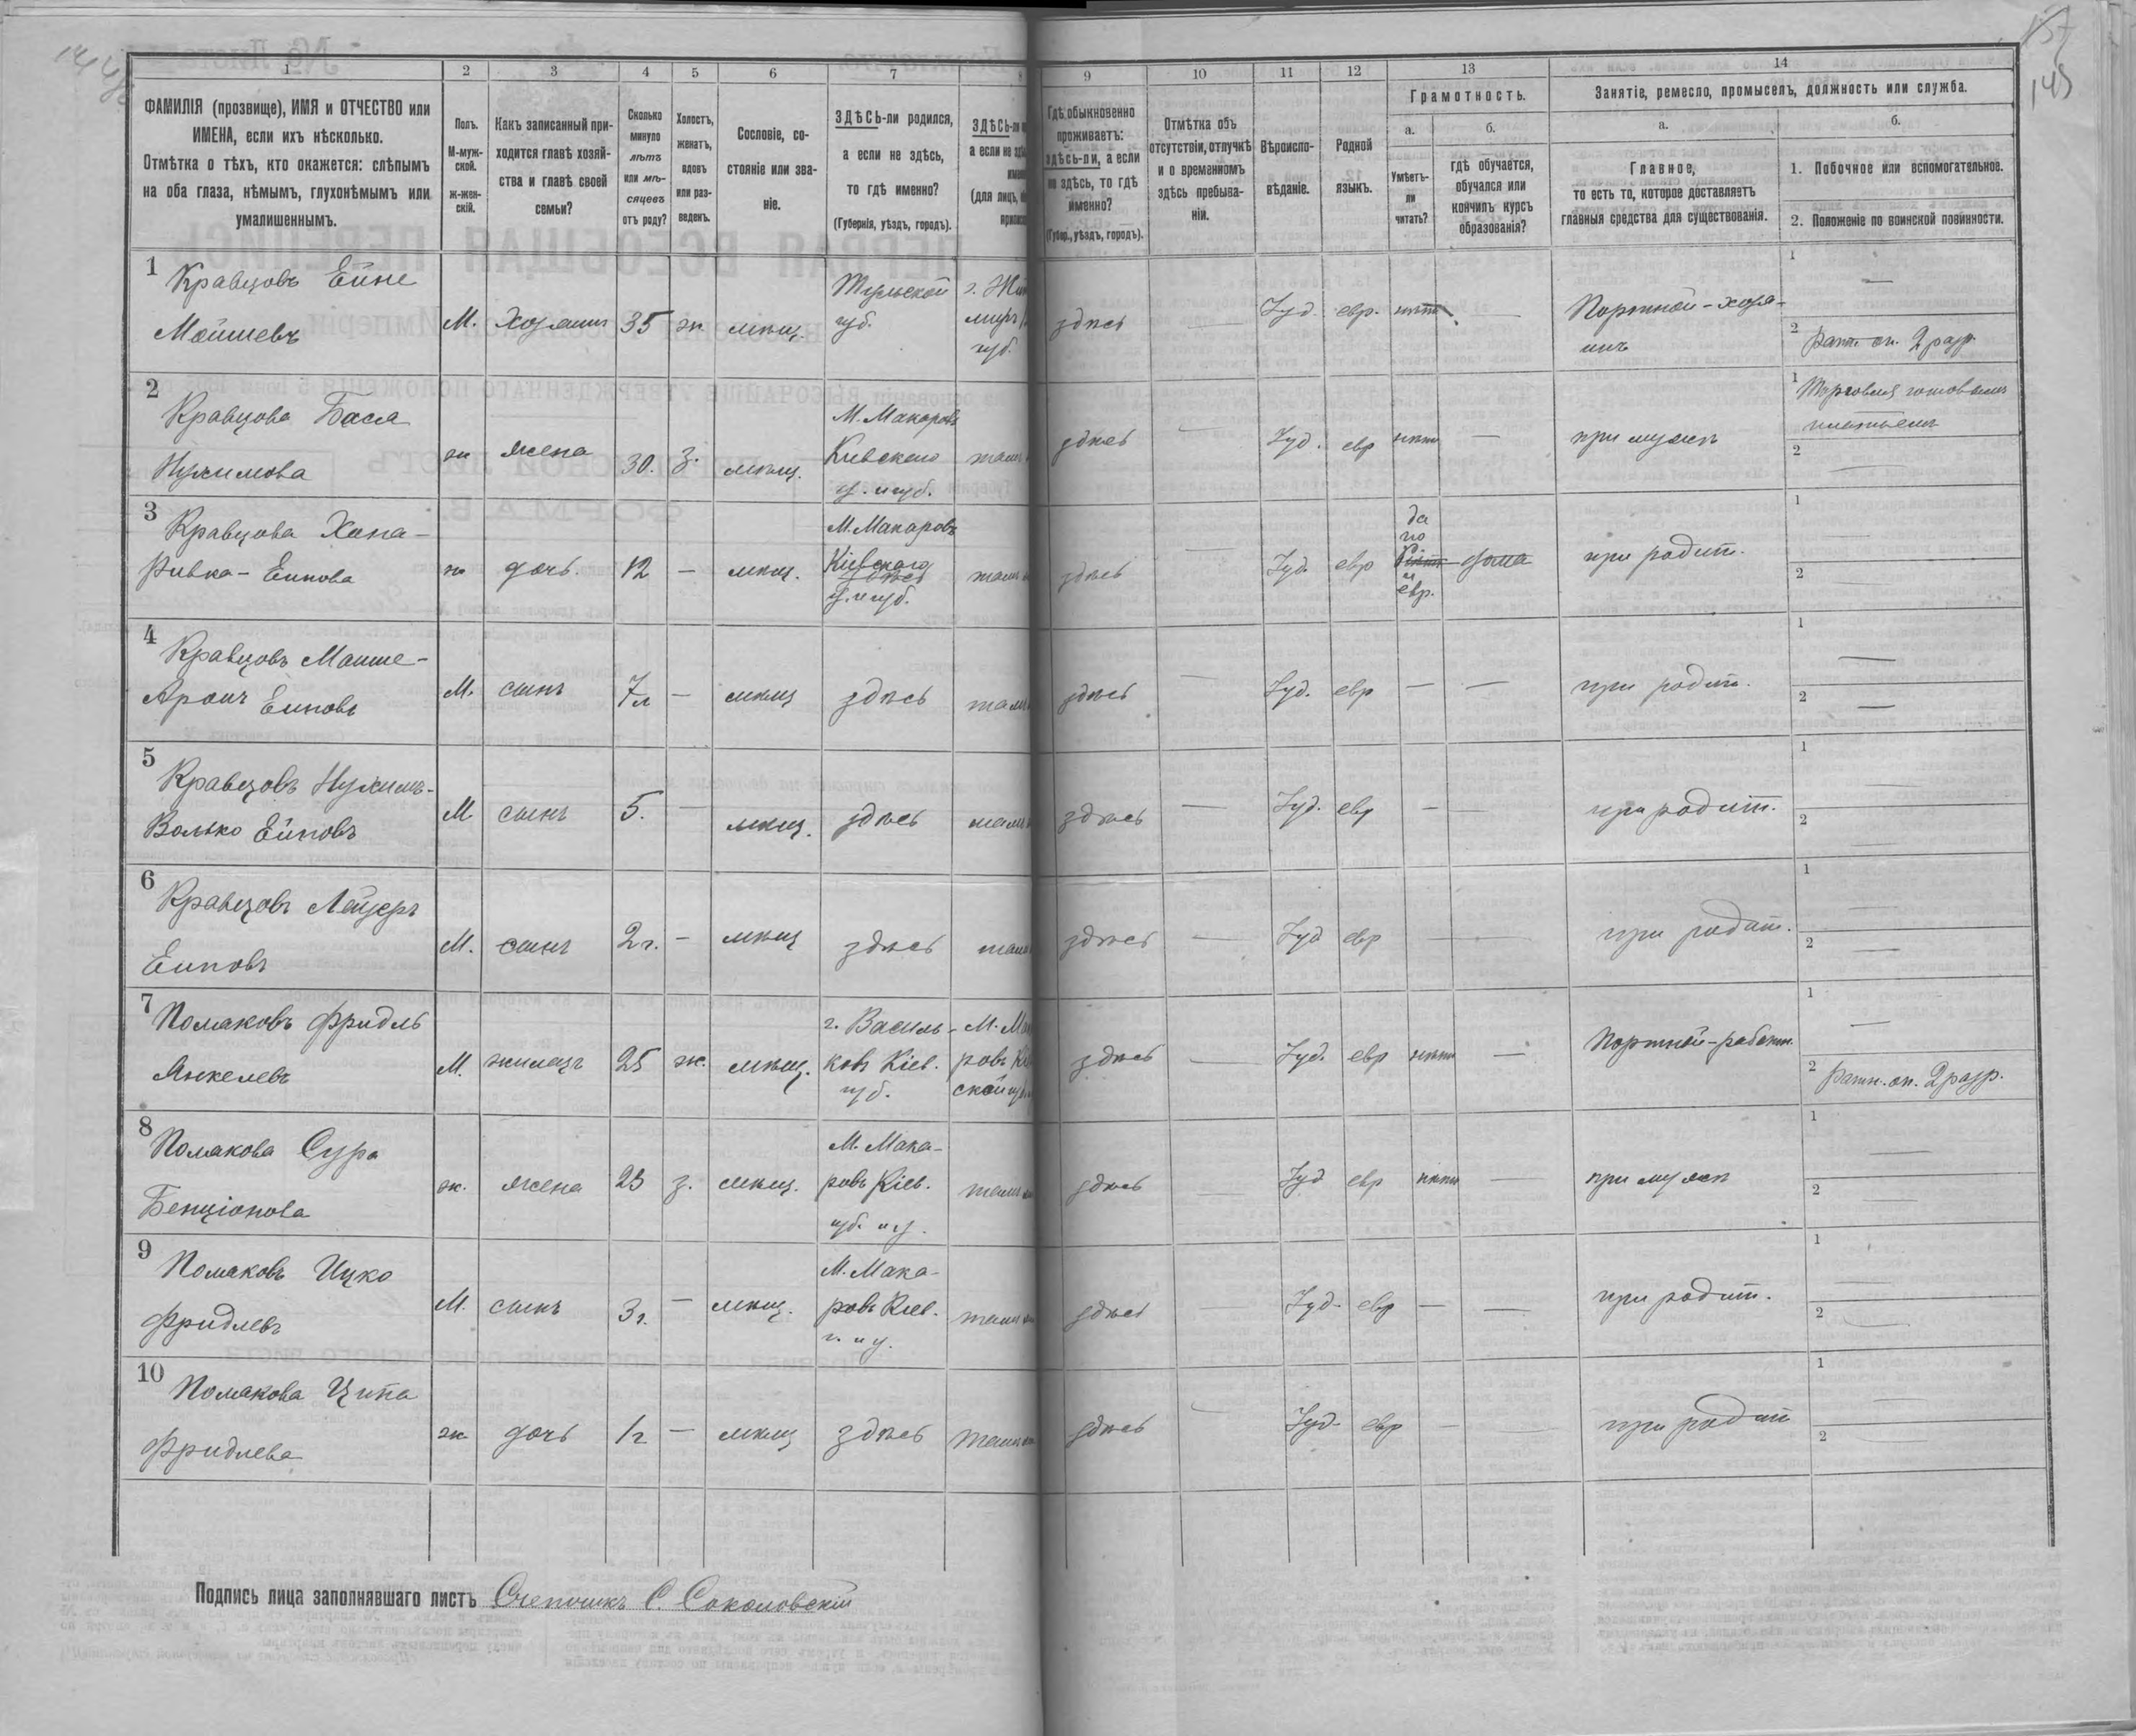 1
2
3
4
5
6
7
9
10
11
12
13
14
145
ФАМИЛІЯ (прозвище), ИМЯ и ОТЧЕСТВО или
ИМЕНА, если ихъ нѣсколько.
Отмѣтка о тѣхъ, кто окажется: слѣпымъ
на оба глаза, нѣмымъ, глухонѣмымъ или
умалишеннымъ.
Полъ.
М-муж-
ской.
ж-жен-
скій.
Какъ записанный при-
ходится главѣ хозяй-
ства и главѣ своей
семьи?
Сколько
минуло
лѣтъ
или мѣ-
сяцевъ
отъ роду?
Холостъ,
женатъ,
вдовъ
или раз-
веденъ.
Сословіе, со-
стояніе или зва-
ніе.
ЗДѢСЬ-ли родился,
а если не здѣсь,
то гдѣ именно?
(Губернія, уѣздъ, городъ).
ЗДѢСЬ-ли
а если не
(для лицъ,
Гдѣ обыкновенно
проживаетъ:
здѣсь-ли, а если
не здѣсь, то гдѣ
именно?
(Губер., уѣздъ, городъ).
Отмѣтка объ
отсутствіи, отлучкѣ
и о временномъ
здѣсь пребыва-
ніи.
Вѣроиспо-
вѣданіе.
Родной
языкъ.
Грамотность.
а.
Умѣетъ-
ли
читать?
б.
гдѣ обучается,
обучался или
кончилъ курсъ
образованія?
Занятіе, ремесло, промыселъ, должность или служба.
а.
Главное,
то есть то, которое доставляетъ
главныя средства для существованія.
б.
1. Побочное или вспомогательное.
2. Положеніе по воинской повинности.
1 Кравцовъ Ейне
Мойшевъ
М. Хозяинъ 35 ж. мѣщ. Тульской губ. здѣсь — Іуд. евр. нѣтъ — Портной-хозя-
инъ
1 —
2 Ратн. оп. 2 разр.
2 Кравцова Бася
Нухимова
ж жена 30. з. мѣщ. М. Макаровъ
Кіевскаго
у. и губ. здѣсь — Іуд. евр нѣтъ — при мужѣ
1 Торговля готовымъ
платьемъ
2 —
3 Кравцова Хана-
Ривка-
ж дочь. 12 — мѣщ. М. Макаровъ
Кіевскаго
у. и губ. здѣсь — Іуд. евр да
по
и
евр. дома при родит.
1
2
4 Кравцовъ
Аронъ
М. сынъ 7л — мѣщ здѣсь здѣсь — Іуд. евр — — при родит.
1 —
2 —
5 Кравцовъ Нухимъ-
Волько
М сынъ 5. — мѣщ. здѣсь здѣсь — Іуд. евр — — при родит.
1 —
2 —
6 Кравцовъ Лейзеръ
М. сынъ 2г. — мѣщ здѣсь здѣсь — Іуд евр — — при родит.
1 —
2 —
7 Поляковъ Фридль
Янкелевъ
М. жилецъ 25 ж. мѣщ. г. Василь-
ковъ Кіев.
губ. здѣсь — Іуд. евр нѣтъ — Портной-работн.
1 —
2 Ратн. оп. 2 разр.
8 Полякова Сура
Бенціонова
ж. жена 23 з. мѣщ. М. Мака-
ровъ Кіев.
губ. и у. здѣсь — Іуд евр нѣтъ — при мужѣ
1 —
2 —
9 Поляковъ Ицко
Фридлевъ
М. сынъ 3г. — мѣщ. М. Мака-
ровъ Кіев.
г. и у. здѣсь — Іуд. евр — — при родит.
1 —
2 —
10 Полякова Ципа
Фридлева
ж дочь 1г — мѣщ здѣсь здѣсь — Іуд. евр — — при родит
1 —
2 —
Подпись лица заполнявшаго листъ Счетчикъ С. Соколовскій